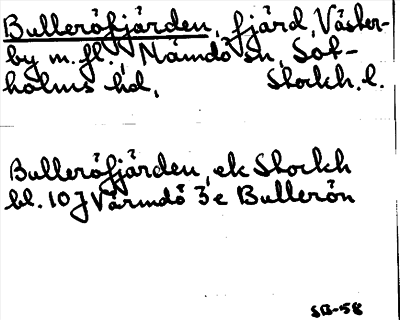 Bulleröfjärden, fjärd, Väster-
by m. fl., Nämdö sn, Sot-
holms hd, Stockh. l.
Bulleröfjärden, ek Stockh
bl. 10 J Värmdö 3 e Bullerön
SB-58